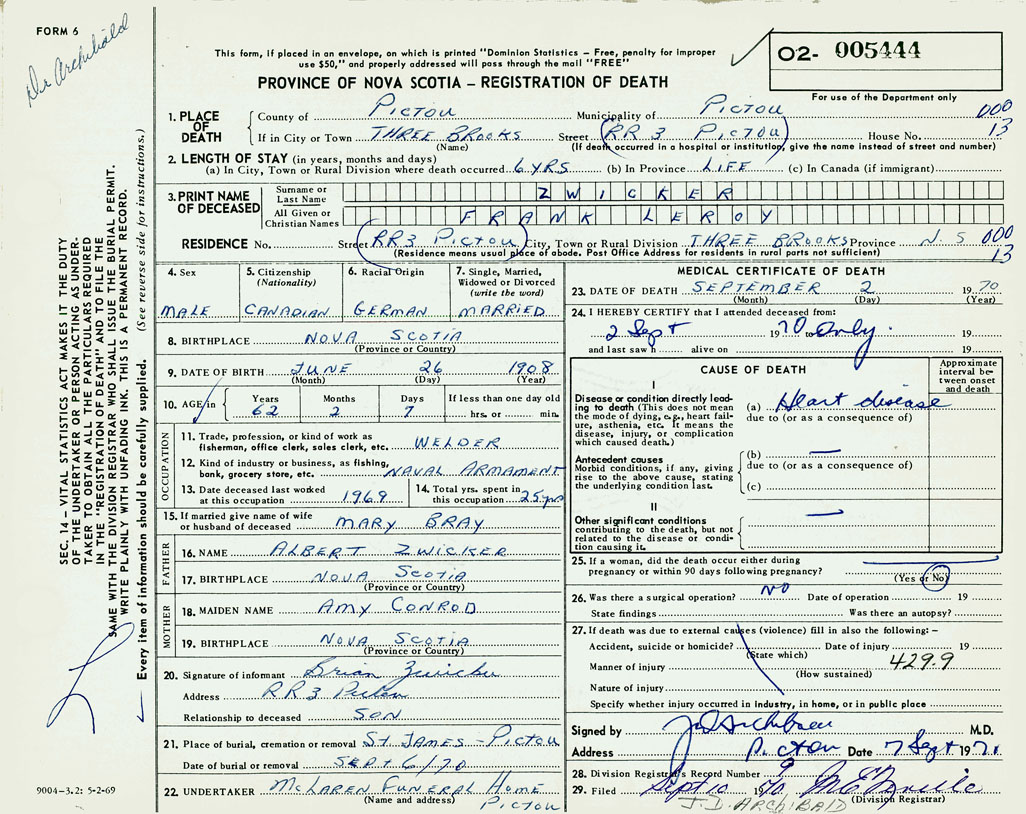 FORM 6
Dr Archibald
This form, if placed in an envelope, on which is printed "Dominion Statistics – Free, penalty for improper
use $50," and properly addressed will pass through the mail "FREE"
PROVINCE OF NOVA SCOTIA – REGISTRATION OF DEATH
02- 005444
For use of the Department only
SEC. 14 – VITAL STATISTICS ACT MAKES IT THE DUTY
OF THE UNDERTAKER OR PERSON ACTING AS UNDER-
TAKER TO OBTAIN ALL THE PARTICULARS REQUIRED
IN THE "REGISTRATION OF DEATH" AND TO FILE THE
SAME WITH THE DIVISION REGISTRAR WHO SHALL ISSUE THE BURIAL PERMIT.
WRITE PLAINLY WITH UNFADING INK. THIS IS A PERMANENT RECORD.
Every item of information should be carefully supplied. (See reverse side for instructions.)
1. PLACE OF DEATH
County of PICTOU Municipality of PICTOU 000
If in City or Town THREE BROOKS Street RR 3 PICTOU House No. 13
(Name) (If death occurred in a hospital or institution, give the name instead of street and number)
2. LENGTH OF STAY (in years, months and days)
(a) In City, Town or Rural Division where death occurred 6 YRS (b) In Province LIFE (c) In Canada (if immigrant)
3. PRINT NAME OF DECEASED
Surname or Last Name ZWICKER
All Given or Christian Names FRANK LEROY
RESIDENCE No. Street RR3 PICTOU City, Town or Rural Division THREE BROOKS Province N.S 000
(Residence means usual place of abode. Post Office Address for residents in rural parts not sufficient) 13
4. Sex
MALE
5. Citizenship (Nationality)
CANADIAN
6. Racial Origin
GERMAN
7. Single, Married, Widowed or Divorced (write the word)
MARRIED
8. BIRTHPLACE NOVA SCOTIA
(Province or Country)
9. DATE OF BIRTH JUNE 26 1908
(Month) (Day) (Year)
10. AGE in Years Months Days If less than one day old
62 2 7 hrs. or min.
OCCUPATION
11. Trade, profession, or kind of work as fisherman, office clerk, sales clerk, etc. WELDER
12. Kind of industry or business, as fishing, bank, grocery store, etc. NAVAL ARMAMENT
13. Date deceased last worked at this occupation 1969
14. Total yrs. spent in this occupation 25 yrs
15. If married give name of wife or husband of deceased MARY BRAY
FATHER
16. NAME ALBERT ZWICKER
17. BIRTHPLACE NOVA SCOTIA
(Province or Country)
MOTHER
18. MAIDEN NAME AMY CONROD
19. BIRTHPLACE NOVA SCOTIA
(Province or Country)
20. Signature of informant Brian Zwicker
Address RR3 Pictou
Relationship to deceased SON
21. Place of burial, cremation or removal ST JAMES – PICTOU
Date of burial or removal SEPT 6/70
22. UNDERTAKER MCLAREN FUNERAL HOME
(Name and address) PICTOU
9004-3.2: 5-2-69
MEDICAL CERTIFICATE OF DEATH
23. DATE OF DEATH SEPTEMBER 2 1970
(Month) (Day) (Year)
24. I HEREBY CERTIFY that I attended deceased from:
2 Sept 1970 only. 19
and last saw h alive on 19
CAUSE OF DEATH
Approximate interval between onset and death
I
Disease or condition directly leading to death (This does not mean the mode of dying, e.g., heart failure, asthenia, etc. It means the disease, injury, or complication which caused death.)
(a) Heart disease
due to (or as a consequence of)
Antecedent causes
Morbid conditions, if any, giving rise to the above cause, stating the underlying condition last.
(b) —
due to (or as a consequence of)
(c)
II
Other significant conditions contributing to the death, but not related to the disease or condition causing it.
—
25. If a woman, did the death occur either during
pregnancy or within 90 days following pregnancy?
(Yes or No)
26. Was there a surgical operation? NO Date of operation 19
State findings Was there an autopsy?
27. If death was due to external causes (violence) fill in also the following:–
Accident, suicide or homicide? Date of injury 19
(State which) 429.9
Manner of injury
(How sustained)
Nature of injury
Specify whether injury occurred in industry, in home, or in public place
Signed by J D Archibald M.D.
Address Pictou Date 7 Sept 1971
28. Division Registrar's Record Number 9
29. Filed Sept 10 1970
(Division Registrar)
J. D. ARCHIBALD